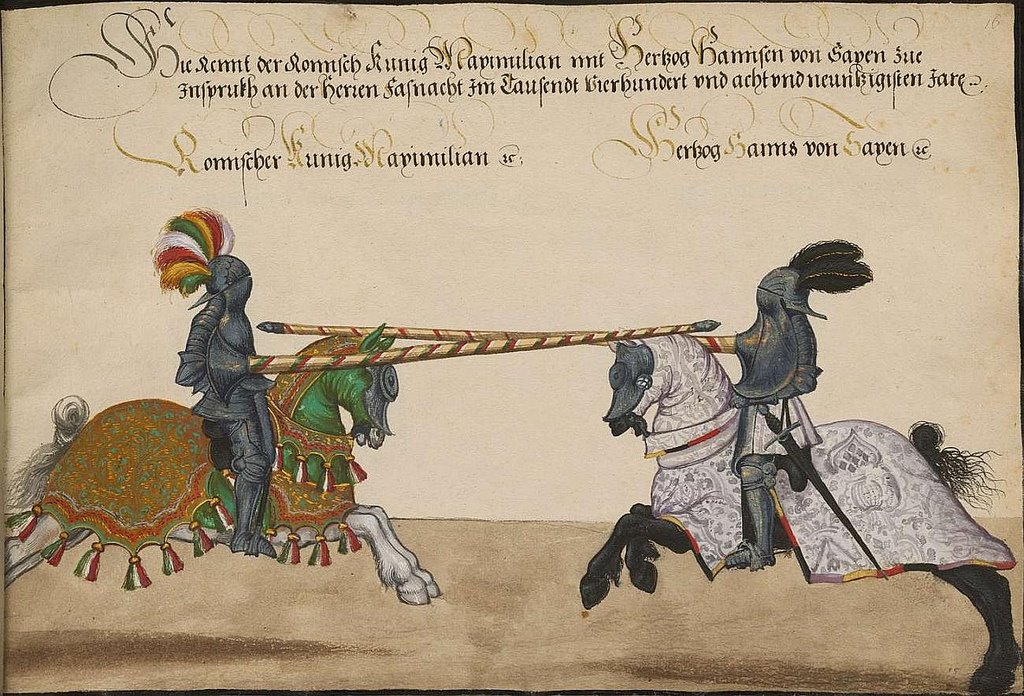 Hie Rennt der Romisch Kunig Maximilian mit Hertzog Hannsen von Saxen zue
Insprukh an der Herren Fasnacht Im Tausendt Vierhundert vnd acht vnd neuntzigisten Jare
Romischer Kunig Maximilian ꝛc:
Hertzog Hanns von Saxen ꝛc
16